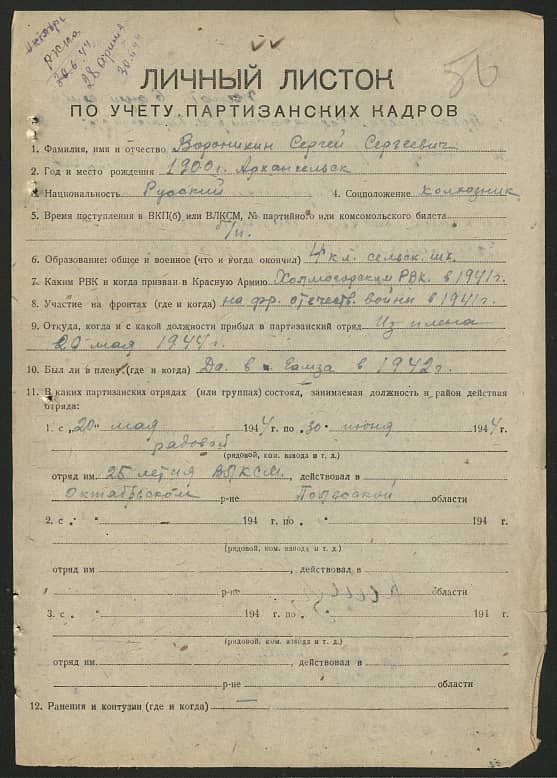 Октябрь
РККА
30.6.44
28 армия
30.6.44
56
ЛИЧНЫЙ ЛИСТОК
ПО УЧЕТУ ПАРТИЗАНСКИХ КАДРОВ
1. Фамилия, имя и отчество Воронихин Сергей Сергеевич
2. Год и место рождения 1900 г. Архангельск
3. Национальность Русский 4. Соцположение колхозник
5. Время поступления в ВКП(б) или ВЛКСМ, № партийного или комсомольского билета
б/п.
6. Образование: общее и военное (что и когда окончил) 4 кл. сельск. шк.
7. Каким РВК и когда призван в Красную Армию Холмогорским РВК. в 1941 г.
8. Участие на фронтах (где и когда) на фр. отечеств. войны в 1941 г.
9. Откуда, когда и с какой должности прибыл в партизанский отряд Из плена
20 мая 1944 г.
10. Был ли в плену (где и когда) Да. в 1942 г.
11. В каких партизанских отрядах (или группах) состоял, занимаемая должность и район действия
отряда:
1. с „20“ мая 1944 г. по „30“ июня 1944 г.
рядовой
(рядовой, ком. взвода и т. д.)
отряд им. 25 летия ВЛКСМ, действовал в
Октябрьском р-не Полесской области
2. с „ “ 194 г. по „ “ 194 г.
(рядовой, ком. взвода и т. д.)
отряд им , действовал в
р-не области
3. с „ “ 194 г. по „ “ 194 г.
(рядовой, ком. взвода и т. д.)
отряд им. , действовал в
р-не области
12. Ранения и контузии (где и когда) —